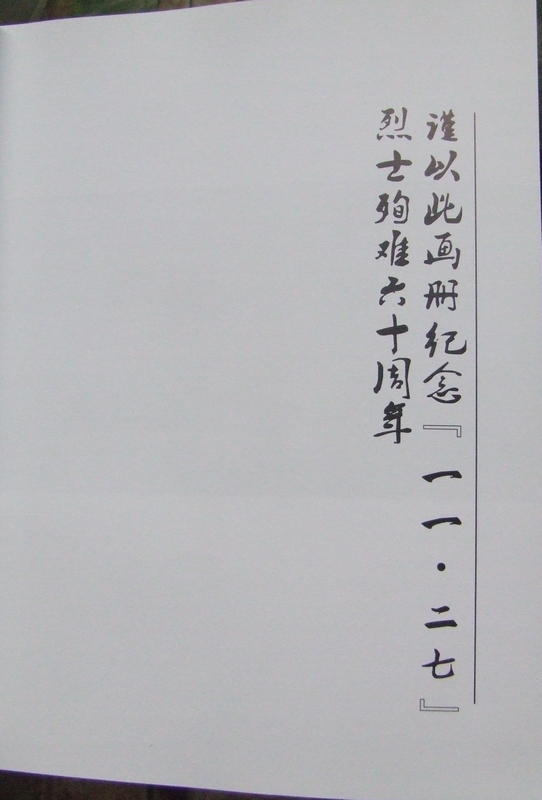 谨以此画册纪念『一一·二七』
烈士殉难六十周年